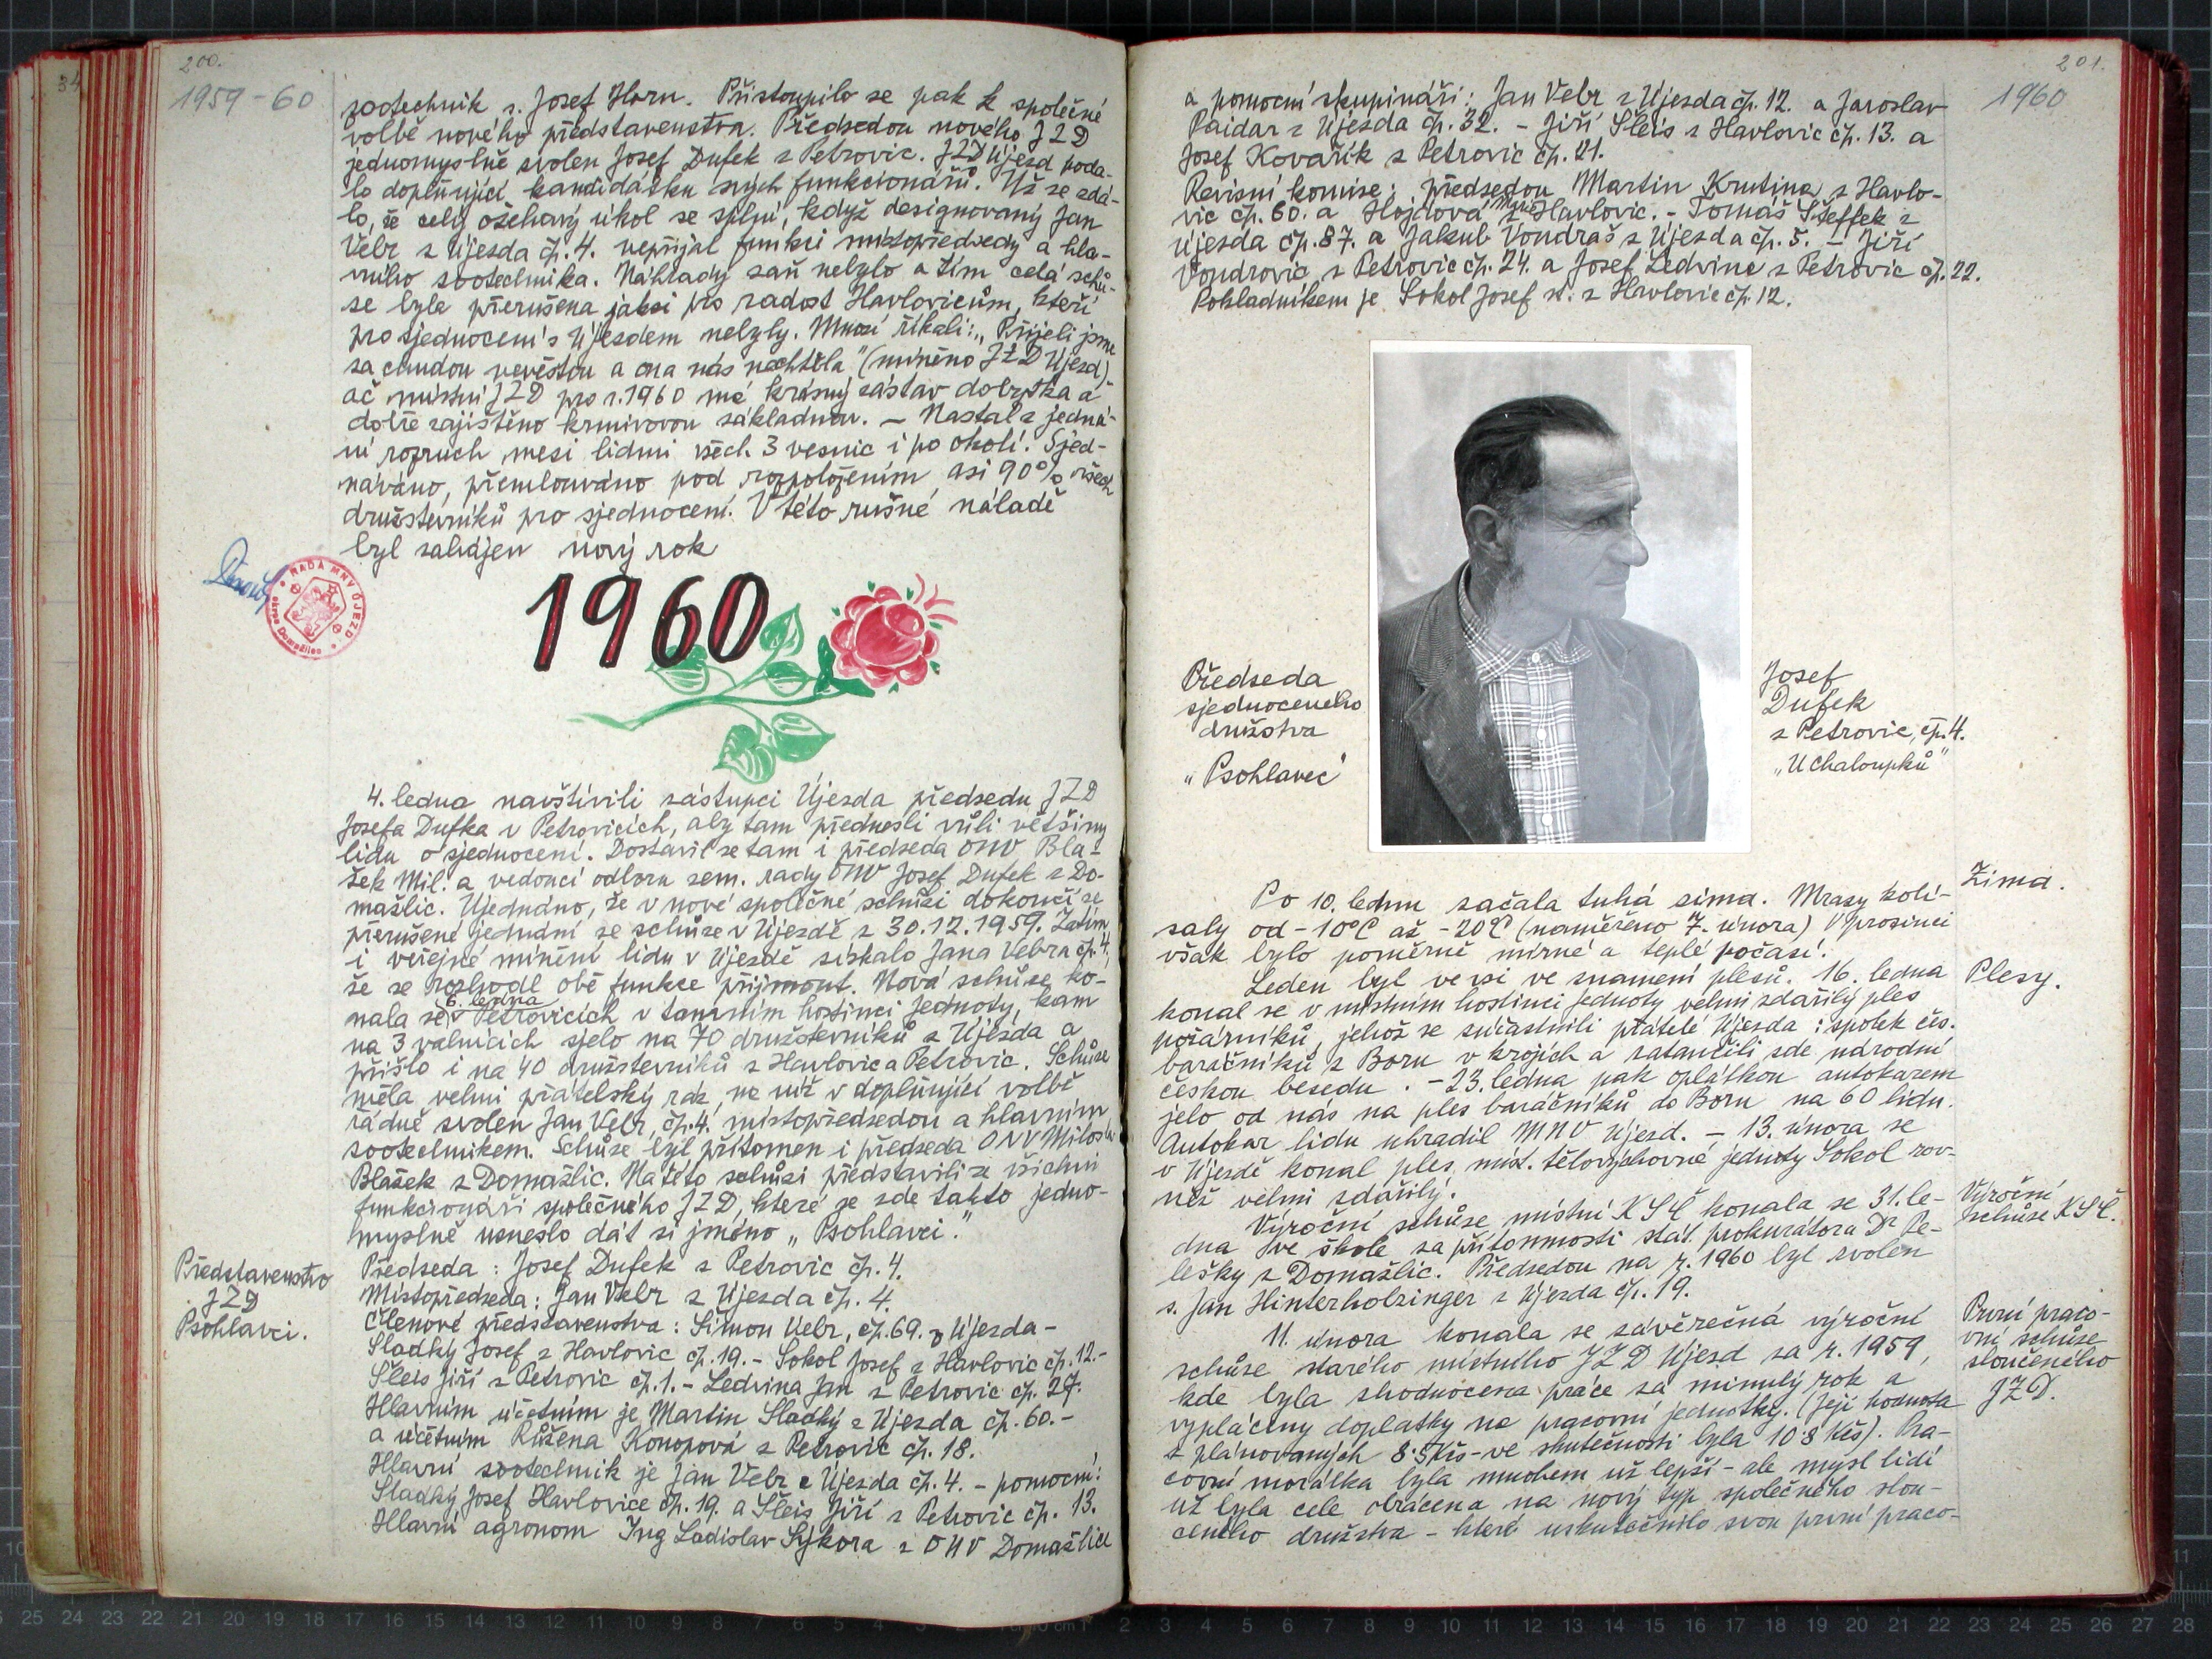 200.
1959 - 60
zootechnik s. Josef Horn. Přistoupilo se pak k společné
volbě nového představenstva. Předsedou nového JZD
jednomyslně zvolen Josef Dufek z Petrovic. JZD Újezd poda-
lo doplňující kandidátku svých funkcionářů. Už se zdá-
lo, že celý ožehavý úkol se splní, když designovaný Jan
Vebr z Újezda čp. 4. nepřijal funkci místopředsedy a hla-
vního zootechnika. Náhrady zaň nebylo a tím celá schů-
se byla přerušena jaksi pro radost Havlovicům, kteří
pro sjednocení s Újezdem nebyly. Mnozí říkali: „Přijeli jsme
za chudou nevěstou a ona nás nechtěla" (míněno JZD Újezd),
ač místní JZD pro r. 1960 má krásný zástav dobytka a
dobře zajištěno krmivovou základnou. — Nastal z jedná-
ní rozruch mezi lidmi všech 3 vesnic i po okolí. Sjed-
náváno, přemlouváno pod rozpoložením asi 90% všech
družstevníků pro sjednocení. V této rušné náladě
byl zahájen nový rok
RADA MNV ÚJEZD
okres Domažlice
1960
4. ledna navštívili zástupci Újezda předsedu JZD
Josefa Dufka v Petrovicích, aby tam přednesli vůli většiny
lidu o sjednocení. Dostavil se tam i předseda ONV Bla-
žek Mil. a vedoucí odboru zem. rady ONV Josef Dufek z Do-
mažlic. Ujednáno, že v nové společné schůzi dokončí se
přerušené jednání ze schůze v Újezdě z 30.12.1959. Zatím
i veřejné mínění lidu v Újezdě získalo Jana Vebra čp. 4,
že se rozhodl obě funkce přijmout. Nová schůze ko-
6. ledna
nala se v Petrovicích v tamním hostinci Jednoty, kam
na 3 valnících sjelo na 70 družstevníků z Újezda a
přišlo i na 40 družstevníků z Havlovic a Petrovic. Schůze
měla velmi přátelský ráz, na níž v doplňující volbě
řádně zvolen Jan Vebr, čp. 4. místopředsedou a hlavním
zootechnikem. Schůze byl přítomen i předseda ONV Miloslav
Blažek z Domažlic. Na této schůzi představili se všichni
funkcionáři společného JZD, které se zde takto jedno-
myslně usneslo dát si jméno „Psohlavci."
Představenstvo
JZD
Psohlavci.
Předseda: Josef Dufek z Petrovic čp. 4.
Místopředseda: Jan Vebr z Újezda čp. 4.
Členové představenstva: Šimon Vebr, čp. 69. z Újezda -
Sladký Josef z Havlovic čp. 19. - Sokol Josef z Havlovic čp. 12.-
Šleis Jiří z Petrovic čp. 1. - Ledvina Jan z Petrovic čp. 27.
Hlavním účetním je Martin Sladký z Újezda čp. 60. -
a účetním Růžena Konopová z Petrovic čp. 18.
Hlavní zootechnik je Jan Vebr z Újezda čp. 4. - pomocní:
Sladký Josef Havlovice čp. 19. a Šleis Jiří z Petrovic čp. 13.
Hlavní agronom Ing Ladislav Sýkora z ONV Domažlice
201.
1960
a pomocní skupináři: Jan Vebr z Újezda čp. 12. a Jaroslav
Paidar z Újezda čp. 32. - Jiří Šleis z Havlovic čp. 13. a
Josef Kovařík z Petrovic čp. 21.
Revisní komise: předsedou Martin Krutina z Havlo-
vic čp. 60. a Hojdová z Havlovic. - Tomáš Šteffek z
Újezda čp. 87. a Jakub Vondraš z Újezda čp. 5. - Jiří
Vondrovic z Petrovic čp. 24. a Josef Ledvina z Petrovic čp. 22.
Pokladníkem je Sokol Josef st. z Havlovic čp. 12.
Předseda
sjednoceného
družstva
„Psohlavci"
Josef
Dufek
z Petrovic, čp. 4.
„U chaloupků"
Po 10. lednu začala tuhá zima. Mrazy kolí-
saly od -10°C až -20°C (naměřeno 7. února) V prosinci
však bylo poměrně mírné a teplé počasí.
Zima.
Leden byl ve vsi ve znamení plesů. 16. ledna
konal se v místním hostinci Jednoty velmi zdařilý ples
požárníků, jehož se súčastnili přátelé Újezda: spolek čes.
baráčníků z Boru v krojích a zatančili zde národní
českou besedu. - 23. ledna pak oplátkou autokarem
jelo od nás na ples baráčníků do Boru na 60 lidu.
Autokar lidu uhradil MNV Újezd. - 13. února se
v Újezdě konal ples míst. tělovýchovné jednoty Sokol rov-
něž velmi zdařilý.
Plesy.
Výroční schůze místní KSČ konala se 31. le-
dna ve škole za přítomnosti stát. prokurátora Dr Pe-
lešky z Domažlic. Předsedou na r. 1960 byl zvolen
s. Jan Hinterholzinger z Újezda čp. 19.
Výroční
schůze KSČ.
11. února konala se závěrečná výroční
schůze starého místního JZD Újezd za r. 1959,
kde byla zhodnocena práce za minulý rok a
vyplaceny doplatky na pracovní jednotky. (Její hodnota
z plánovaných 8·5 Kčs - ve skutečnosti byla 10·8 Kčs). Pra-
covní morálka byla mnohem už lepší - ale mysl lidí
už byla cele obrácena na nový typ společného slou-
ceného družstva - které uskutečnilo svou první praco-
První praco-
vní schůze
sloučeného
JZD.